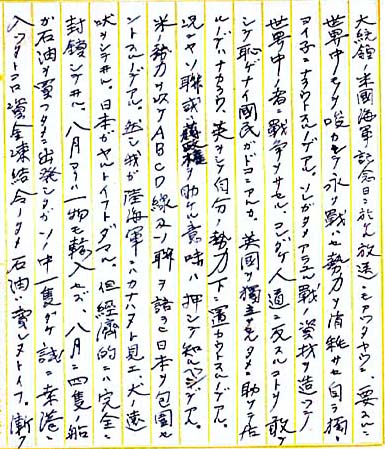 大統領ノ米國海軍記念日ニ於ケル放送ニモアツタヤウニ、要スルニ
世界中ヲ嗾カセテ永ク戰ハセ勢力ヲ消耗サセ自ラ獨リ
ヨイ子ニナラウトスルノデアル。ソレガタメアラユル戰ノ資材ヲ造ツテ
世界中ノ者ニ戰争ヲサセル。コンナ人道ニ反スルコトヲ敢テ
シテ恥ヂナイ國民ガドコニアルカ。英國ノ獨立タメニ助ケテ居
ルノデハナカラウ、英ヲシテ自分ノ勢力下ニ置カウトスルノデアル。
況ンヤソ聯或ハ蒋政權ヲ助ケル意味ハ押シテ知ルベシデアル。
米勢力ヲ以テABCD線ソ聯ヲ語ラヒ日本ヲ包圍セ
ントスルノデアル。然シ我ガ陸海軍ニハカナハヌト見エ犬ノ遠
吠ヲシテヰル。日本ガヤレトイフトダマル。但経済的ニハ完全ニ
封鎖シテヰル。八月ヨリハ一物モ輸入セズ、八月ニ四隻ノ船
ガ石油ヲ買フタメニ出発シタガソノ中一隻ダケ試ニ桑港ニ
入ツタトコロ資金凍結令ノタメ石油ハ賣レヌトイフ。漸ク